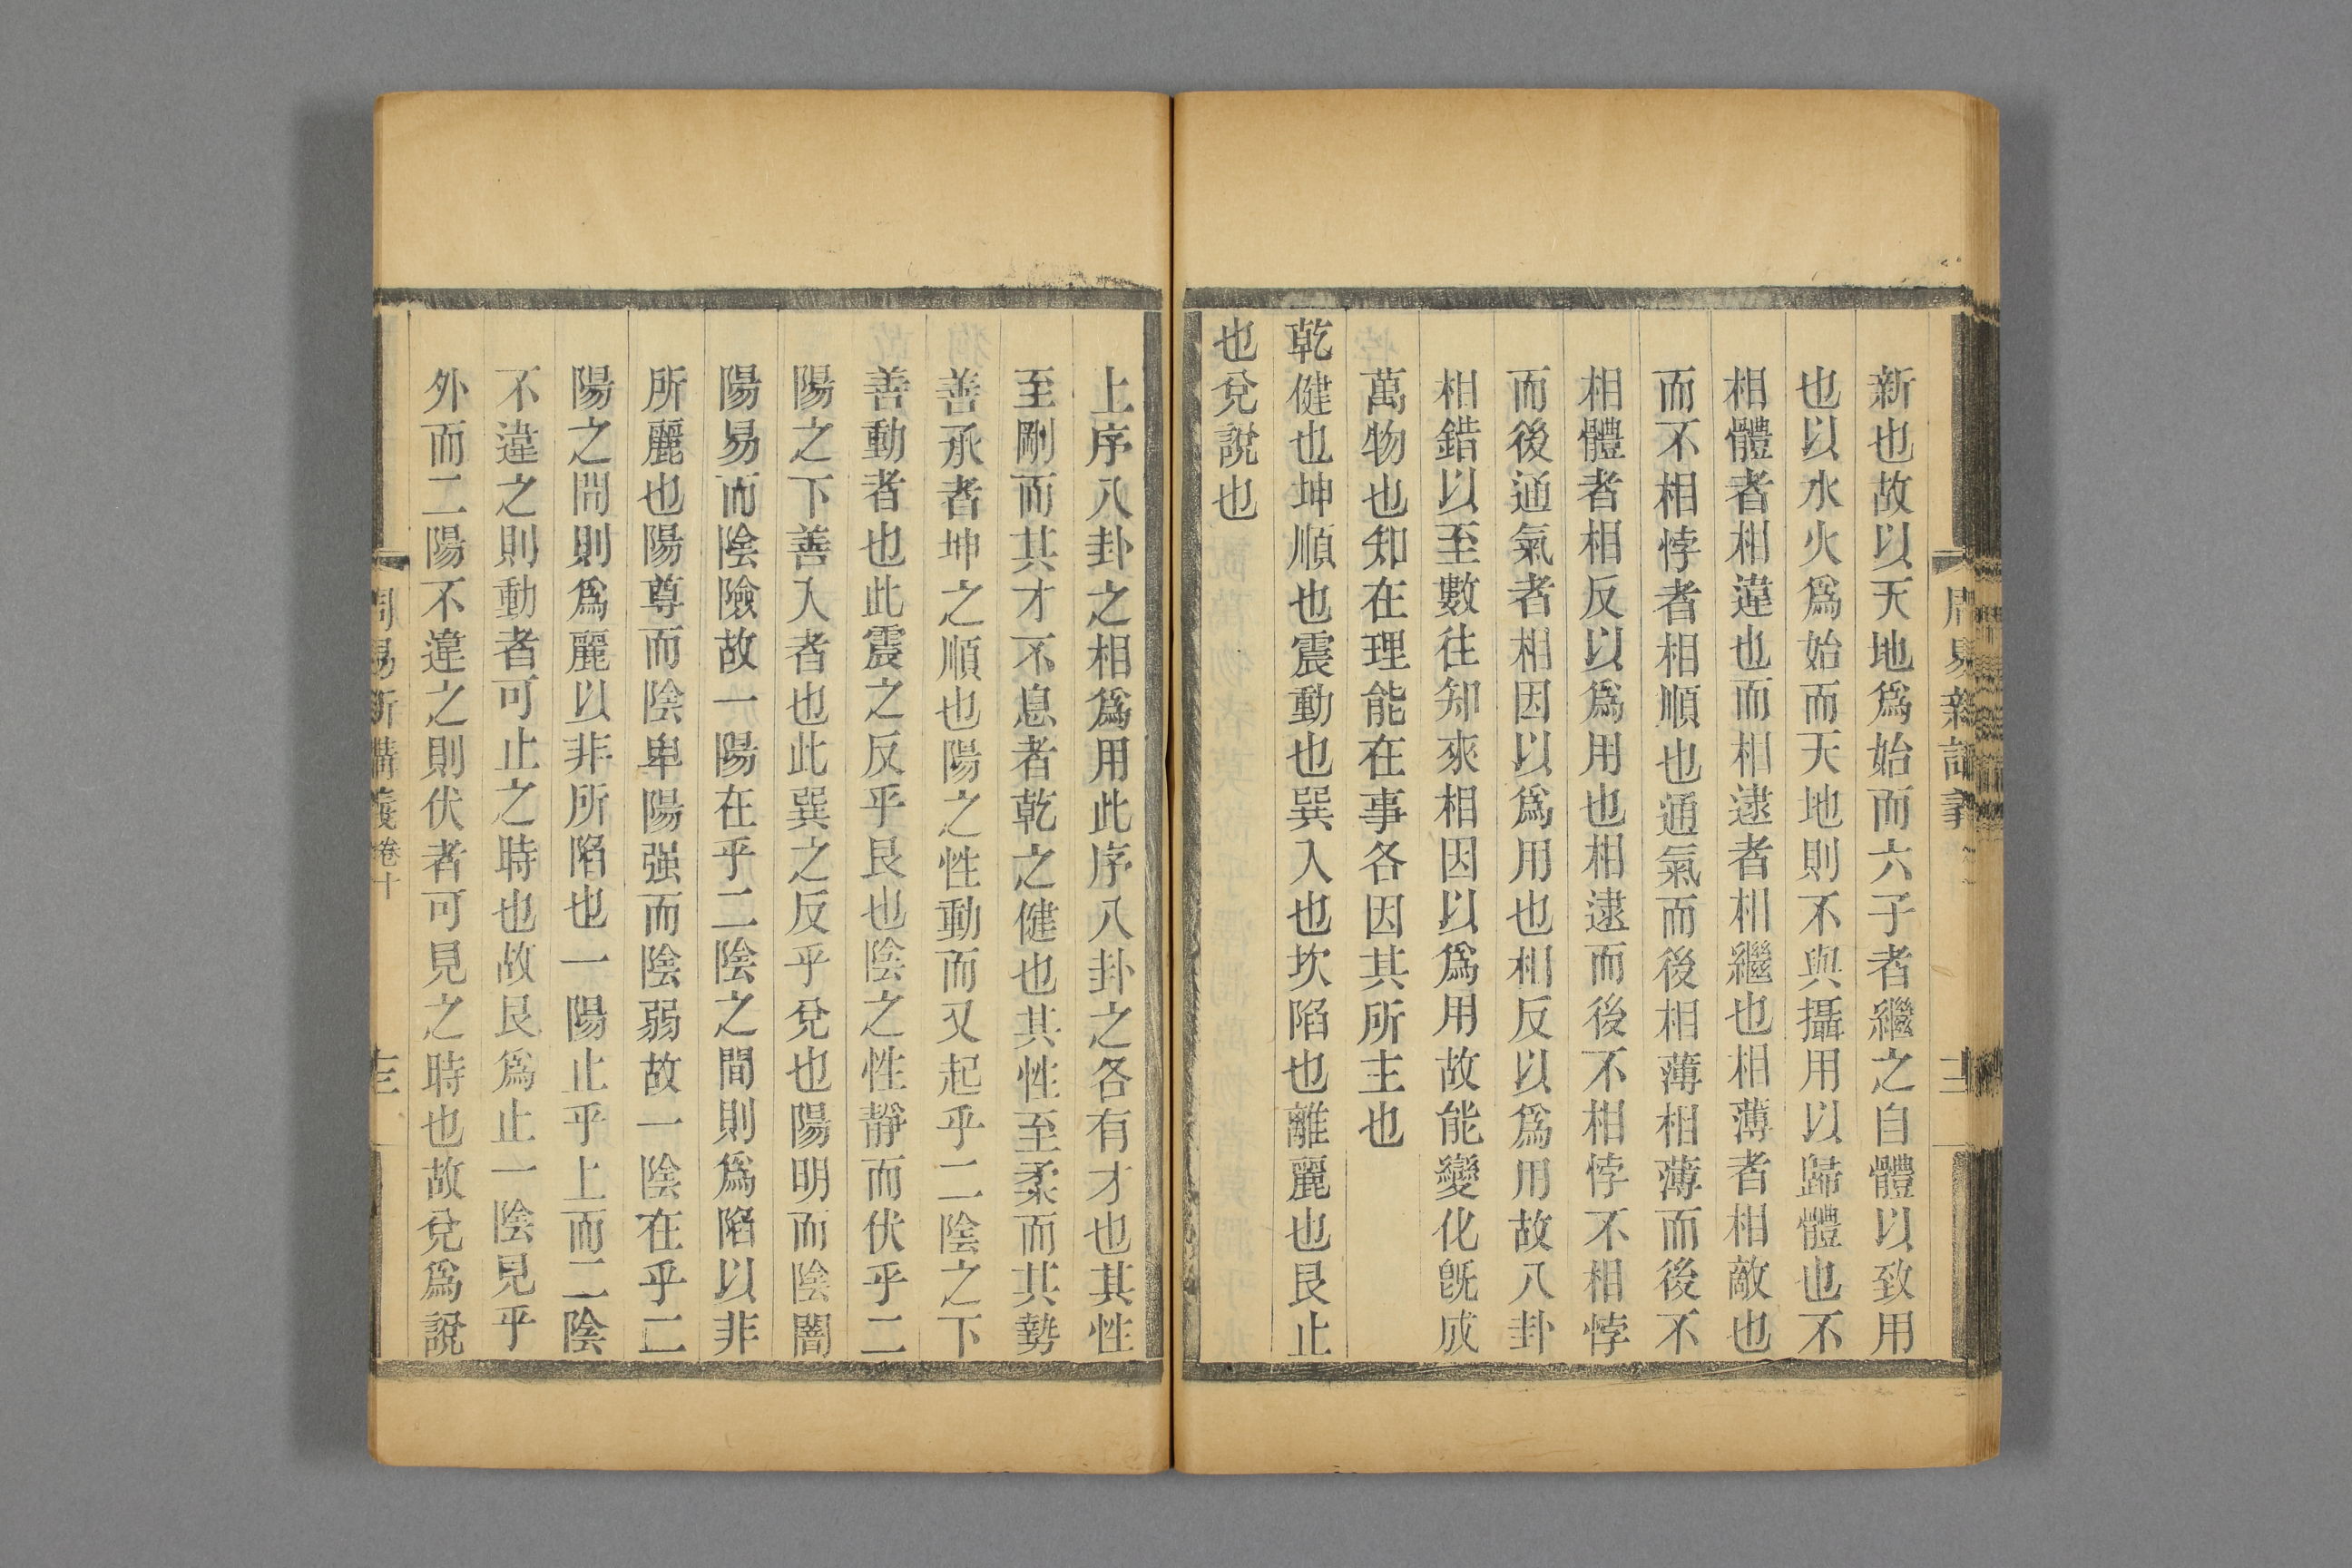 新也故以天地爲始而六子者繼之自體以致用
也以水火爲始而天地則不與攝用以歸體也不
相體者相違也而相逮者相繼也相薄者相敵也
而不相悖者相順也通氣而後相薄相薄而後不
相體者相反以爲用也相逮而後不相悖不相悖
而後通氣者相因以爲用也相反以爲用故八卦
相錯以至數往知來相因以爲用故能變化旣成
萬物也知在理能在事各因其所主也
乾健也坤順也震動也巽入也坎陷也離麗也艮止
也兌說也
上序八卦之相爲用此序八卦之各有才也其性
至剛而其才不息者乾之健也其性至柔而其勢
善承者坤之順也陽之性動而又起乎二陰之下
善動者也此震之反乎艮也陰之性靜而伏乎二
陽之下善入者也此巽之反乎兌也陽明而陰闇
陽易而陰險故一陽在乎二陰之間則爲陷以非
所麗也陽尊而陰卑陽强而陰弱故一陰在乎二
陽之間則爲麗以非所陷也一陽止乎上而二陰
不違之則動者可止之時也故艮爲止一陰見乎
外而二陽不違之則伏者可見之時也故兌爲說
周易新講義 卷十
十三